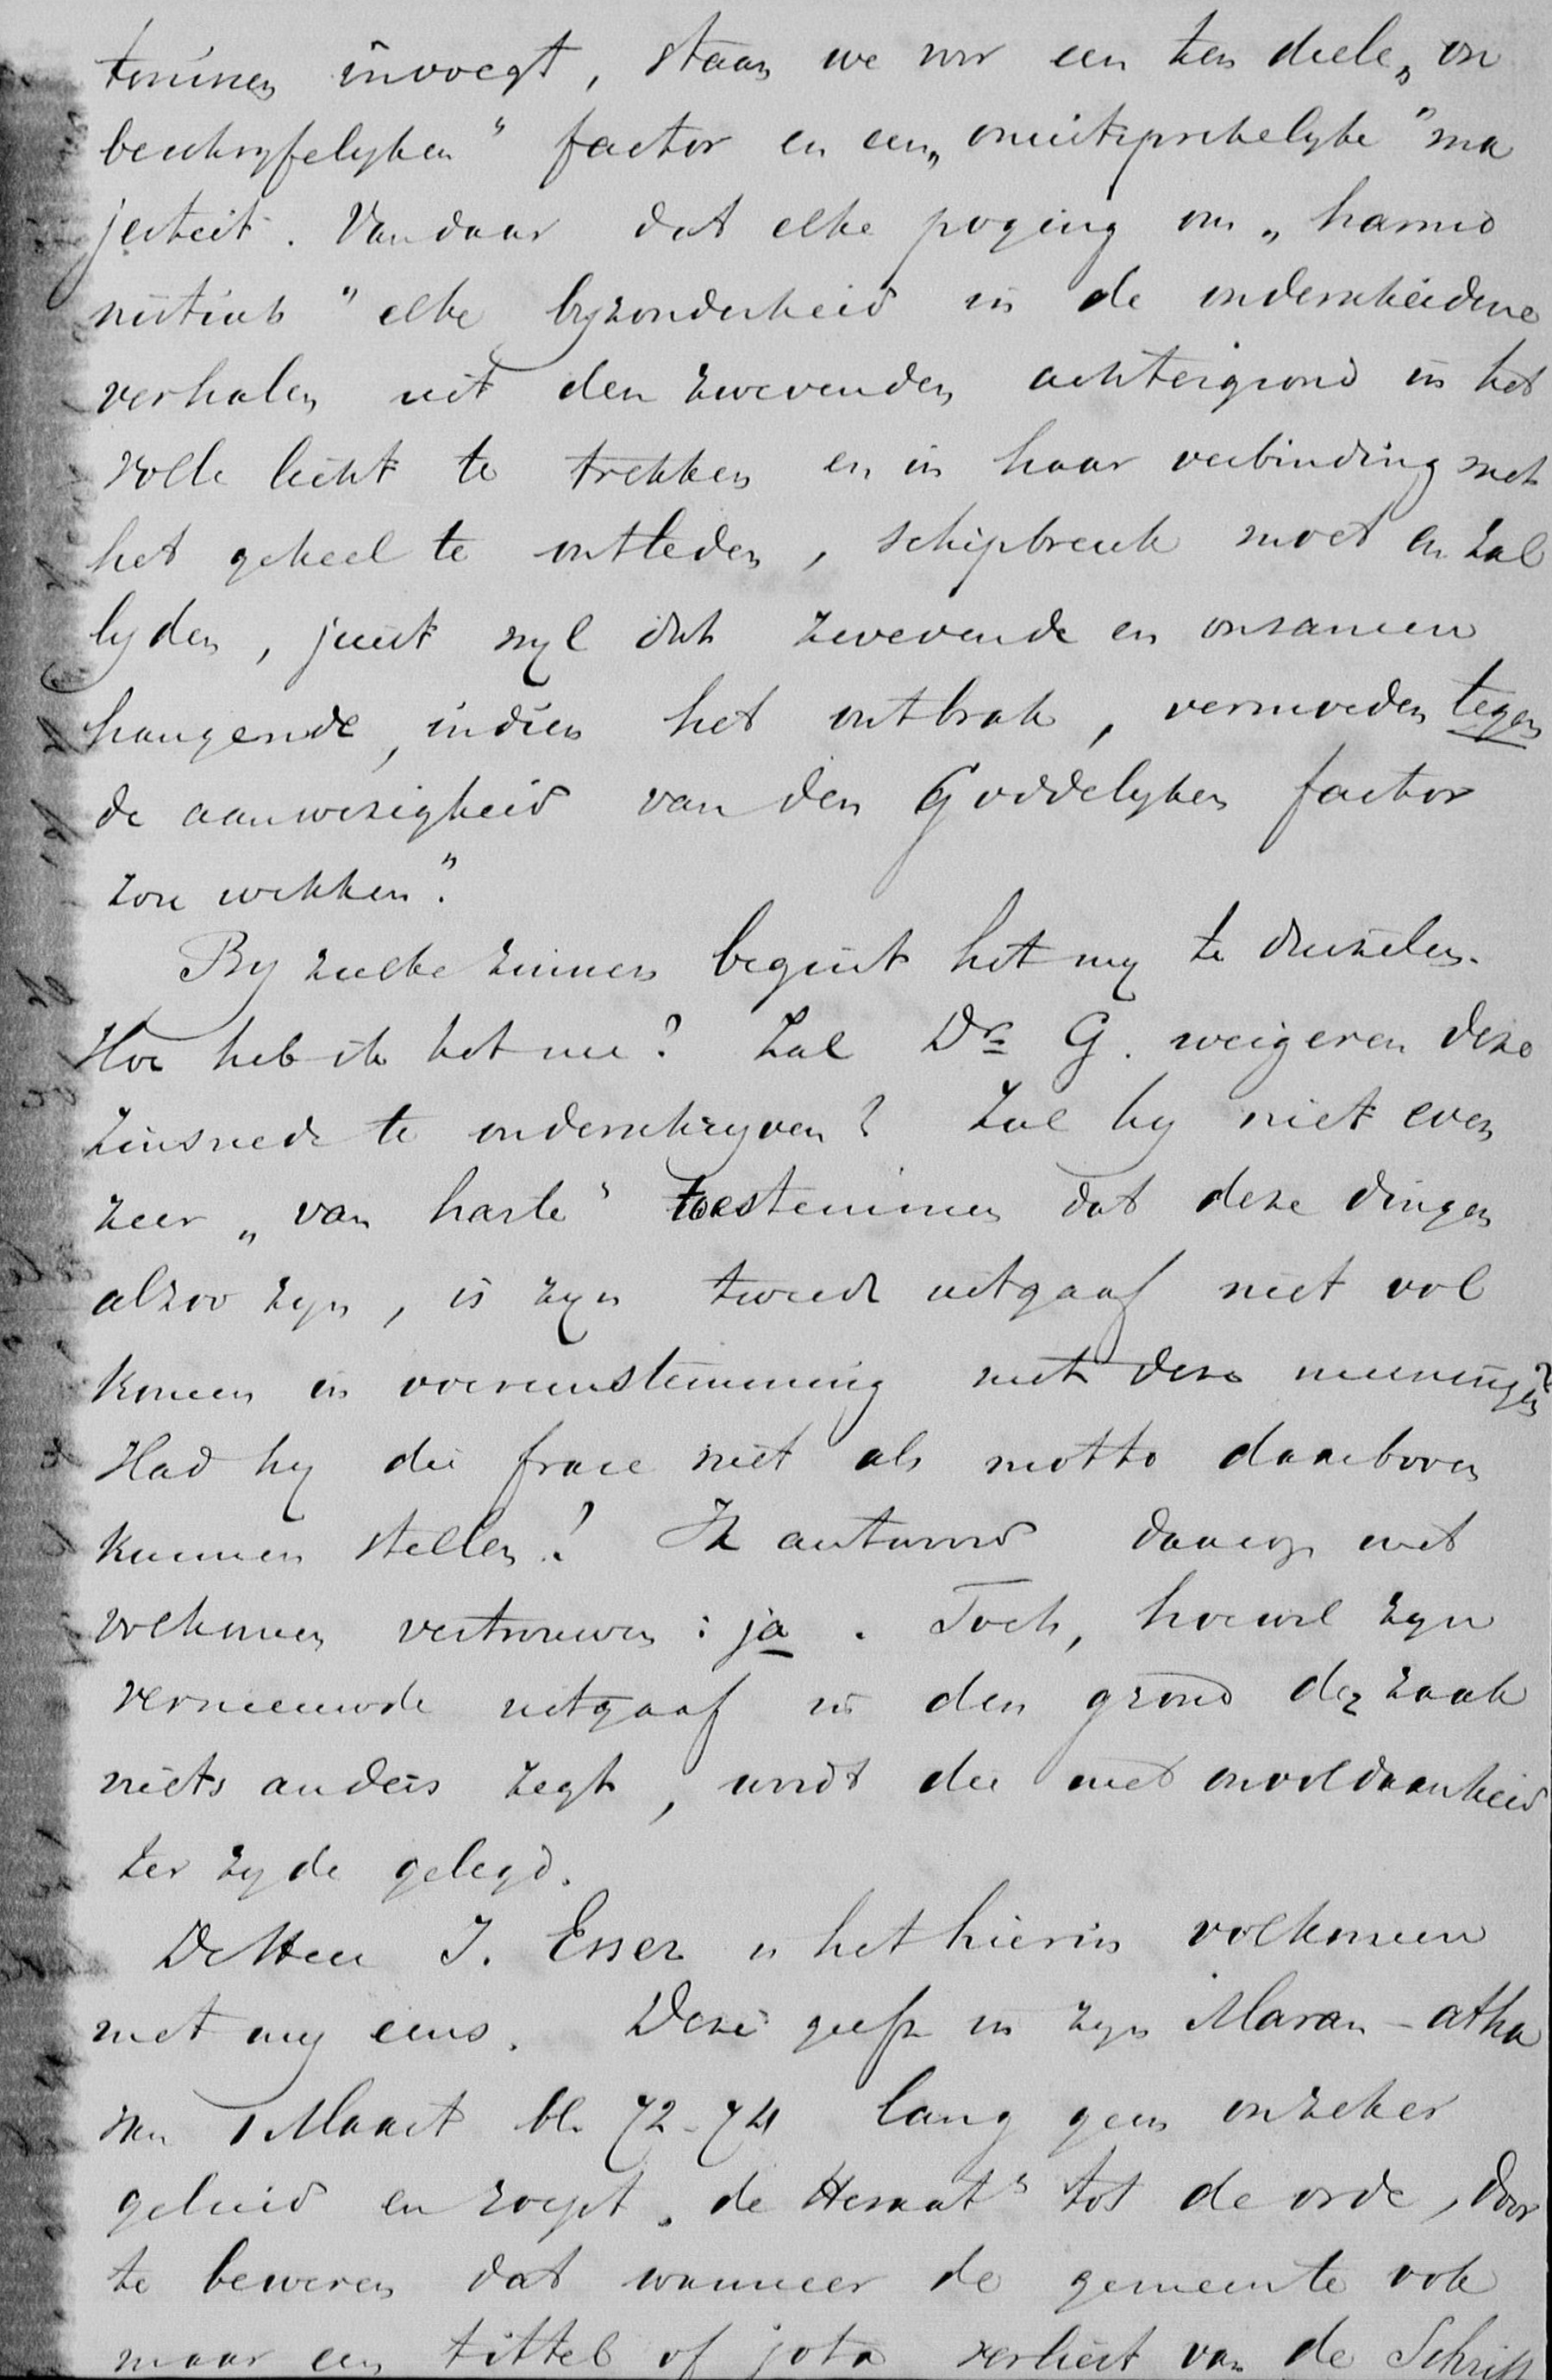 tonnen invoegt, staan we voor een ten deele „on
beschryfelyken" factor en een „onuitsprekelyke" ma
jesteit. Vandaar dat elke poging om „harmo
nistiek" elke byzonderheid in de onderscheidene
verhalen uit den zwevenden achtergrond in het
volle licht te trekken en in haar verbinding met
het geheel te ontleden, schipbreuk moet en zal
lyden, juist wyl dat zwevende en onsamen
hangende, indien het ontbrak, vermoeden tegen
de aanwezigheid van den Goddelyken factor
zou wekken".
By zulke zinnen begint het my te duizelen.
Hoe heb ik het nu? Zal Dr. G. weigeren deze
zinsnede te onderschryven? Zal hy niet even
zeer „van harte" toestemmen dat deze dingen
alzoo zyn, is zyn tweede uitgaaf niet vol
komen in overeenstemming met deze meeningen?
Had hy die frase niet als motto daarboven
kunnen stellen? Ik antwoord daarop met
volkomen vertrouwen: ja. Toch, hoewel zyn
vernieuwde uitgaaf in den grond der zaak
niets anders zegt, wordt die met onvoldaanheid
ter zyde gelegd.
De Heer I. Esser is het hierin volkomen
met my eens. Deze geeft in zyn Maran-atha
van 1 Maart bl. 72-74 lang geen onzeker
geluid en roept „de Heraut" tot de orde, door
te beweren dat wanneer de gemeente ook
maar een tittel of jota verliest van de Schrift